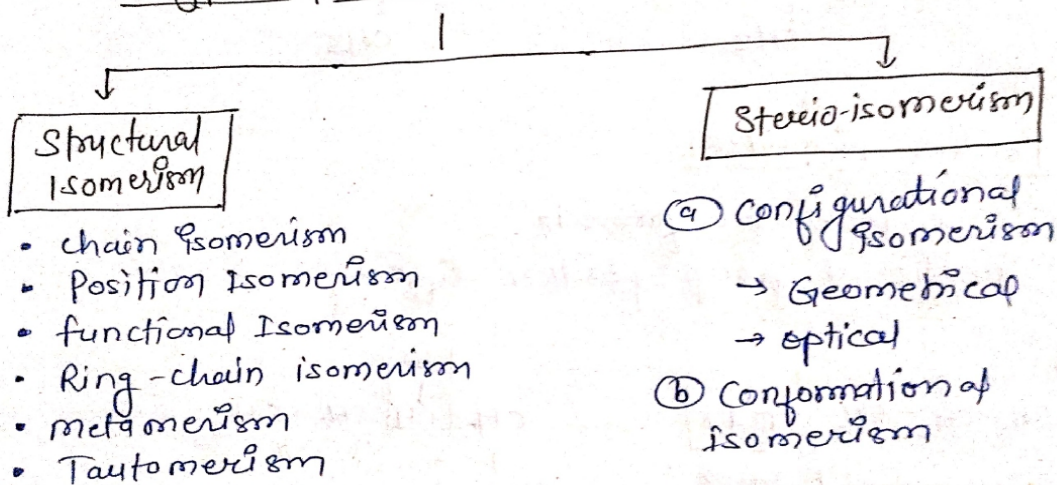 Structural
Isomerism
• chain isomerism
• Position Isomerism
• functional Isomerism
• Ring-chain isomerism
• metamerism
• Tautomerism
Stereio-isomerism
ⓐ Configurational
isomerism
→ Geometrical
→ optical
ⓑ Conformational
isomerism